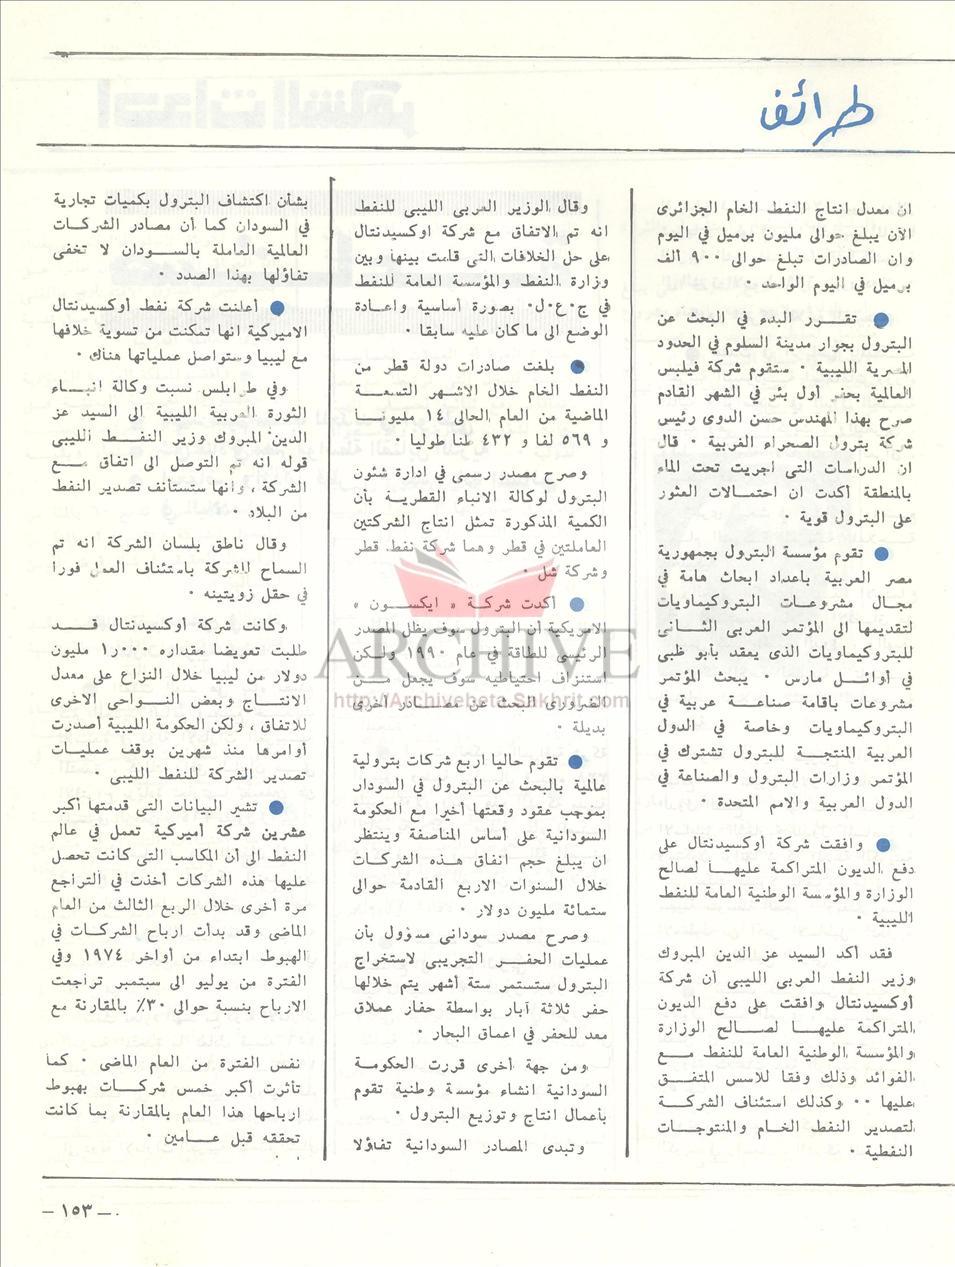 طرائف
ان معدل انتاج النفط الخام الجزائرى
الآن يبلغ حوالى مليون برميل في اليوم
وان الصادرات تبلغ حوالى ٩٠٠ ألف
برميل في اليوم الواحد ٠
● تقـــرر البدء في البحث عن
البترول بجوار مدينة السلوم في الحدود
المصرية الليبية ٠ ستقوم شركة فيلبس
العالمية بحفر أول بئر في الشهر القادم
صرح بهذا المهندس حسن الدوى رئيس
شركة بترول الصحراء الغربية ٠ قال
ان الدراسات التى اجريت تحت الماء
بالمنطقة أكدت ان احتمالات العثور
على البترول قوية ٠
● تقوم مؤسسة البترول بجمهورية
مصر العربية باعداد ابحاث هامة في
مجال مشروعات البتروكيماويات
لتقديمها الى المؤتمر العربى الثـــانى
للبتروكيماويات الذى يعقد بأبو ظبى
في أوائـــل مارس ٠ يبحث المؤتمر
مشروعات باقامة صناعـــة عربية في
البتروكيماويات وخاصة في الدول
العربية المنتجـــة للبترول تشترك في
المؤتمر وزارات البترول والصناعة في
الدول العربية والامم المتحدة ٠
● وافقت شركة أوكسيدنتال على
دفع الديون المتراكمة عليهـــا لصالح
الوزارة والمؤسسة الوطنية العامة للنفط
الليبية ٠
فقد أكد السيد عز الدين المبروك
وزير النفط العربى الليبى أن شركة
أوكسيدنتال وافقت على دفع الديون
المتراكمة عليهـــا لصـــالح الوزارة
والمؤسسة الوطنية العامة للنفط مـــع
الفوائد وذلك وفقا للاسس المتفـــق
عليها ٠٠ وكذلك استئناف الشركـــة
لتصدير النفط الخـــام والمنتوجـــات
النفطية ٠
وقال الوزير العربى الليبى للنفط
انه تم الاتفاق مع شركة اوكسيدنتال
على حل الخلافات التى قامت بينها وبين
وزارة النفط والمؤسسة العامة للنفط
في ج٠ع٠ل٠ بصورة أساسية واعـــادة
الوضع الى ما كان عليه سابقا ٠
● بلغت صادرات دولة قطر من
النفط الخام خلال الاشهر التسعـــة
الماضية من العام الحالى ١٤ مليونـــا
و ٥٦٩ لفا و ٤٣٢ طنا طوليا ٠
وصرح مصدر رسمى في ادارة شئون
البترول لوكالة الانباء القطرية بأن
الكمية المذكورة تمثل انتاج الشركتين
العاملتين في قطر وهما شركة نفط قطر
وشركة شل ٠
● أكدت شركـــة « ايكســـون »
الامريكية أن البترول سوف يظل المصدر
الرئيسى للطاقة في عام ١٩٩٠ ولكـن
استنزاف احتياطيه سوف يجعل مـــن
الضرورى البحث عن مصـــادر أخرى
بديلة ٠
● تقوم حاليا اربع شركات بترولية
عالمية بالبحث عن البترول في السودان
بموجب عقود وقعتها أخيرا مع الحكومة
السودانية على أساس المناصفة وينتظر
ان يبلغ حجم انفاق هـــذه الشركات
خلال السنوات الاربع القادمة حوالى
ستمائة مليون دولار ٠
وصرح مصدر سودانى مسؤول بأن
عمليات الحفـــر التجريبى لاستخراج
البترول ستستمر ستة أشهر يتم خلالها
حفر ثلاثة آبار بواسطة حفار عملاق
معد للحفر في اعماق البحار ٠
ومن جهة أخرى قررت الحكومـــة
السودانية انشاء مؤسسة وطنية تقوم
بأعمال انتاج وتوزيع البترول ٠
وتبدى المصادر السودانية تفاؤلا
بشأن اكتشاف البترول بكميات تجارية
في السودان كما أن مصادر الشركات
العالمية العاملة بالســـودان لا تخفى
تفاؤلها بهذا الصدد ٠
● أعلنت شركة نفط أوكسيدنتال
الاميركية انها تمكنت من تسوية خلافها
مع ليبيا وستواصل عملياتها هناك ٠
وفي طرابلس نسبت وكالة انبـــاء
الثورة العربية الليبية الى السيد عز
الدين المبروك وزير النفـــط الليبى
قوله انه تم التوصل الى اتفاق مـــع
الشركة ، وانها ستستأنف تصدير النفط
من البلاد ٠
وقال ناطق بلسان الشركة انه تم
السماح للشركة باستئناف العمل فورا
في حقل زويتينه ٠
وكانت شركة أوكسيدنتال قـــد
طلبت تعويضا مقداره ٠٠٠ر١ مليون
دولار من ليبيا خلال النزاع على معدل
الانتـــاج وبعض النـــواحى الاخرى
للاتفاق ، ولكن الحكومة الليبية أصدرت
أوامرها منذ شهرين بوقف عمليـــات
تصدير الشركة للنفط الليبى ٠
● تشير البيانات التى قدمتها أكبر
عشرين شركة أميركية تعمل في عالم
النفط الى أن المكاسب التى كانت تحصل
عليها هذه الشركات أخذت في التراجع
مرة أخرى خلال الربع الثالث من العام
الماضى وقد بدأت ارباح الشركات في
الهبوط ابتداء من أواخر ١٩٧٤ وفي
الفترة من يوليو الى سبتمبر تراجعت
الارباح بنسبة حوالى ٣٠٪ بالمقارنة مع
نفس الفترة من العام الماضى ٠ كمـا
تأثرت أكبر خمس شركـــات بهبوط
ارباحها هذا العام بالمقارنة بما كانت
تحققه قبل عـــامين ٠
ARCHIVE
http://Archivebeta.Sakhrit.com
— ١٥٣ —